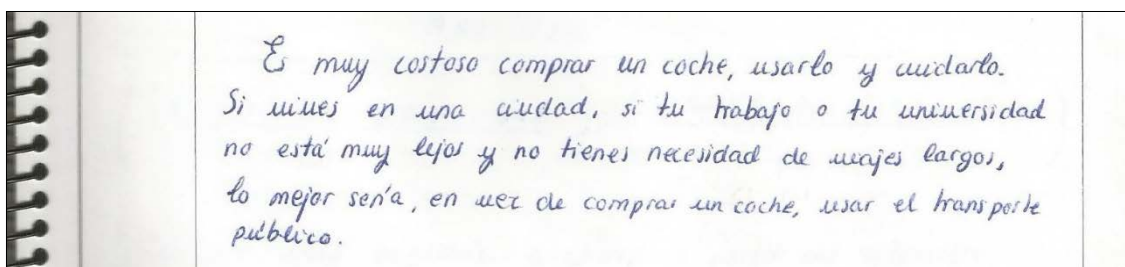 Es muy costoso comprar un coche, usarlo y cuidarlo.
Si vives en una ciudad, si tu trabajo o tu universidad
no está muy lejos y no tienes necesidad de viajes largos,
lo mejor sería, en vez de comprar un coche, usar el transporte
público.